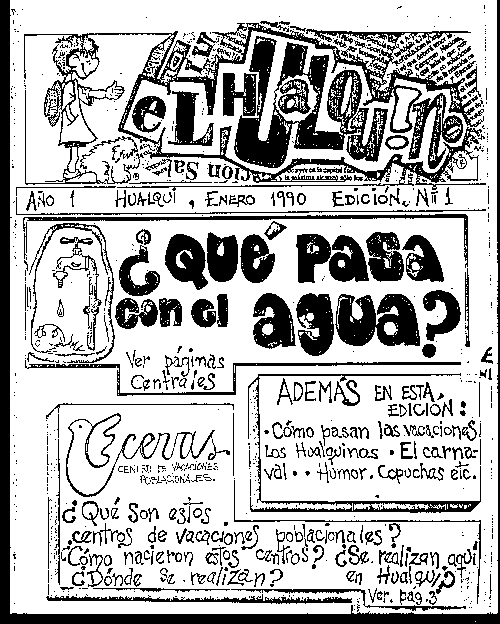 el Hualquino
AÑO 1 HUALQUI, ENERO 1990 EDICIÓN Nº 1
¿QUÉ PASA
con el agua?
Ver páginas
Centrales
ADEMÁS EN ESTA
EDICIÓN:
·Cómo pasan las vacaciones
Los Hualquinos · El carna-
val · · Humor. Copuchas etc.
Cecevas
CENTRO DE VACACIONES
POBLACIONALES.
¿Qué son estos
centros de vacaciones poblacionales?
¿Cómo nacieron estos centros? ¿Se realizan aquí
¿Dónde se realizan? en Hualqui?
Ver. pág. 3